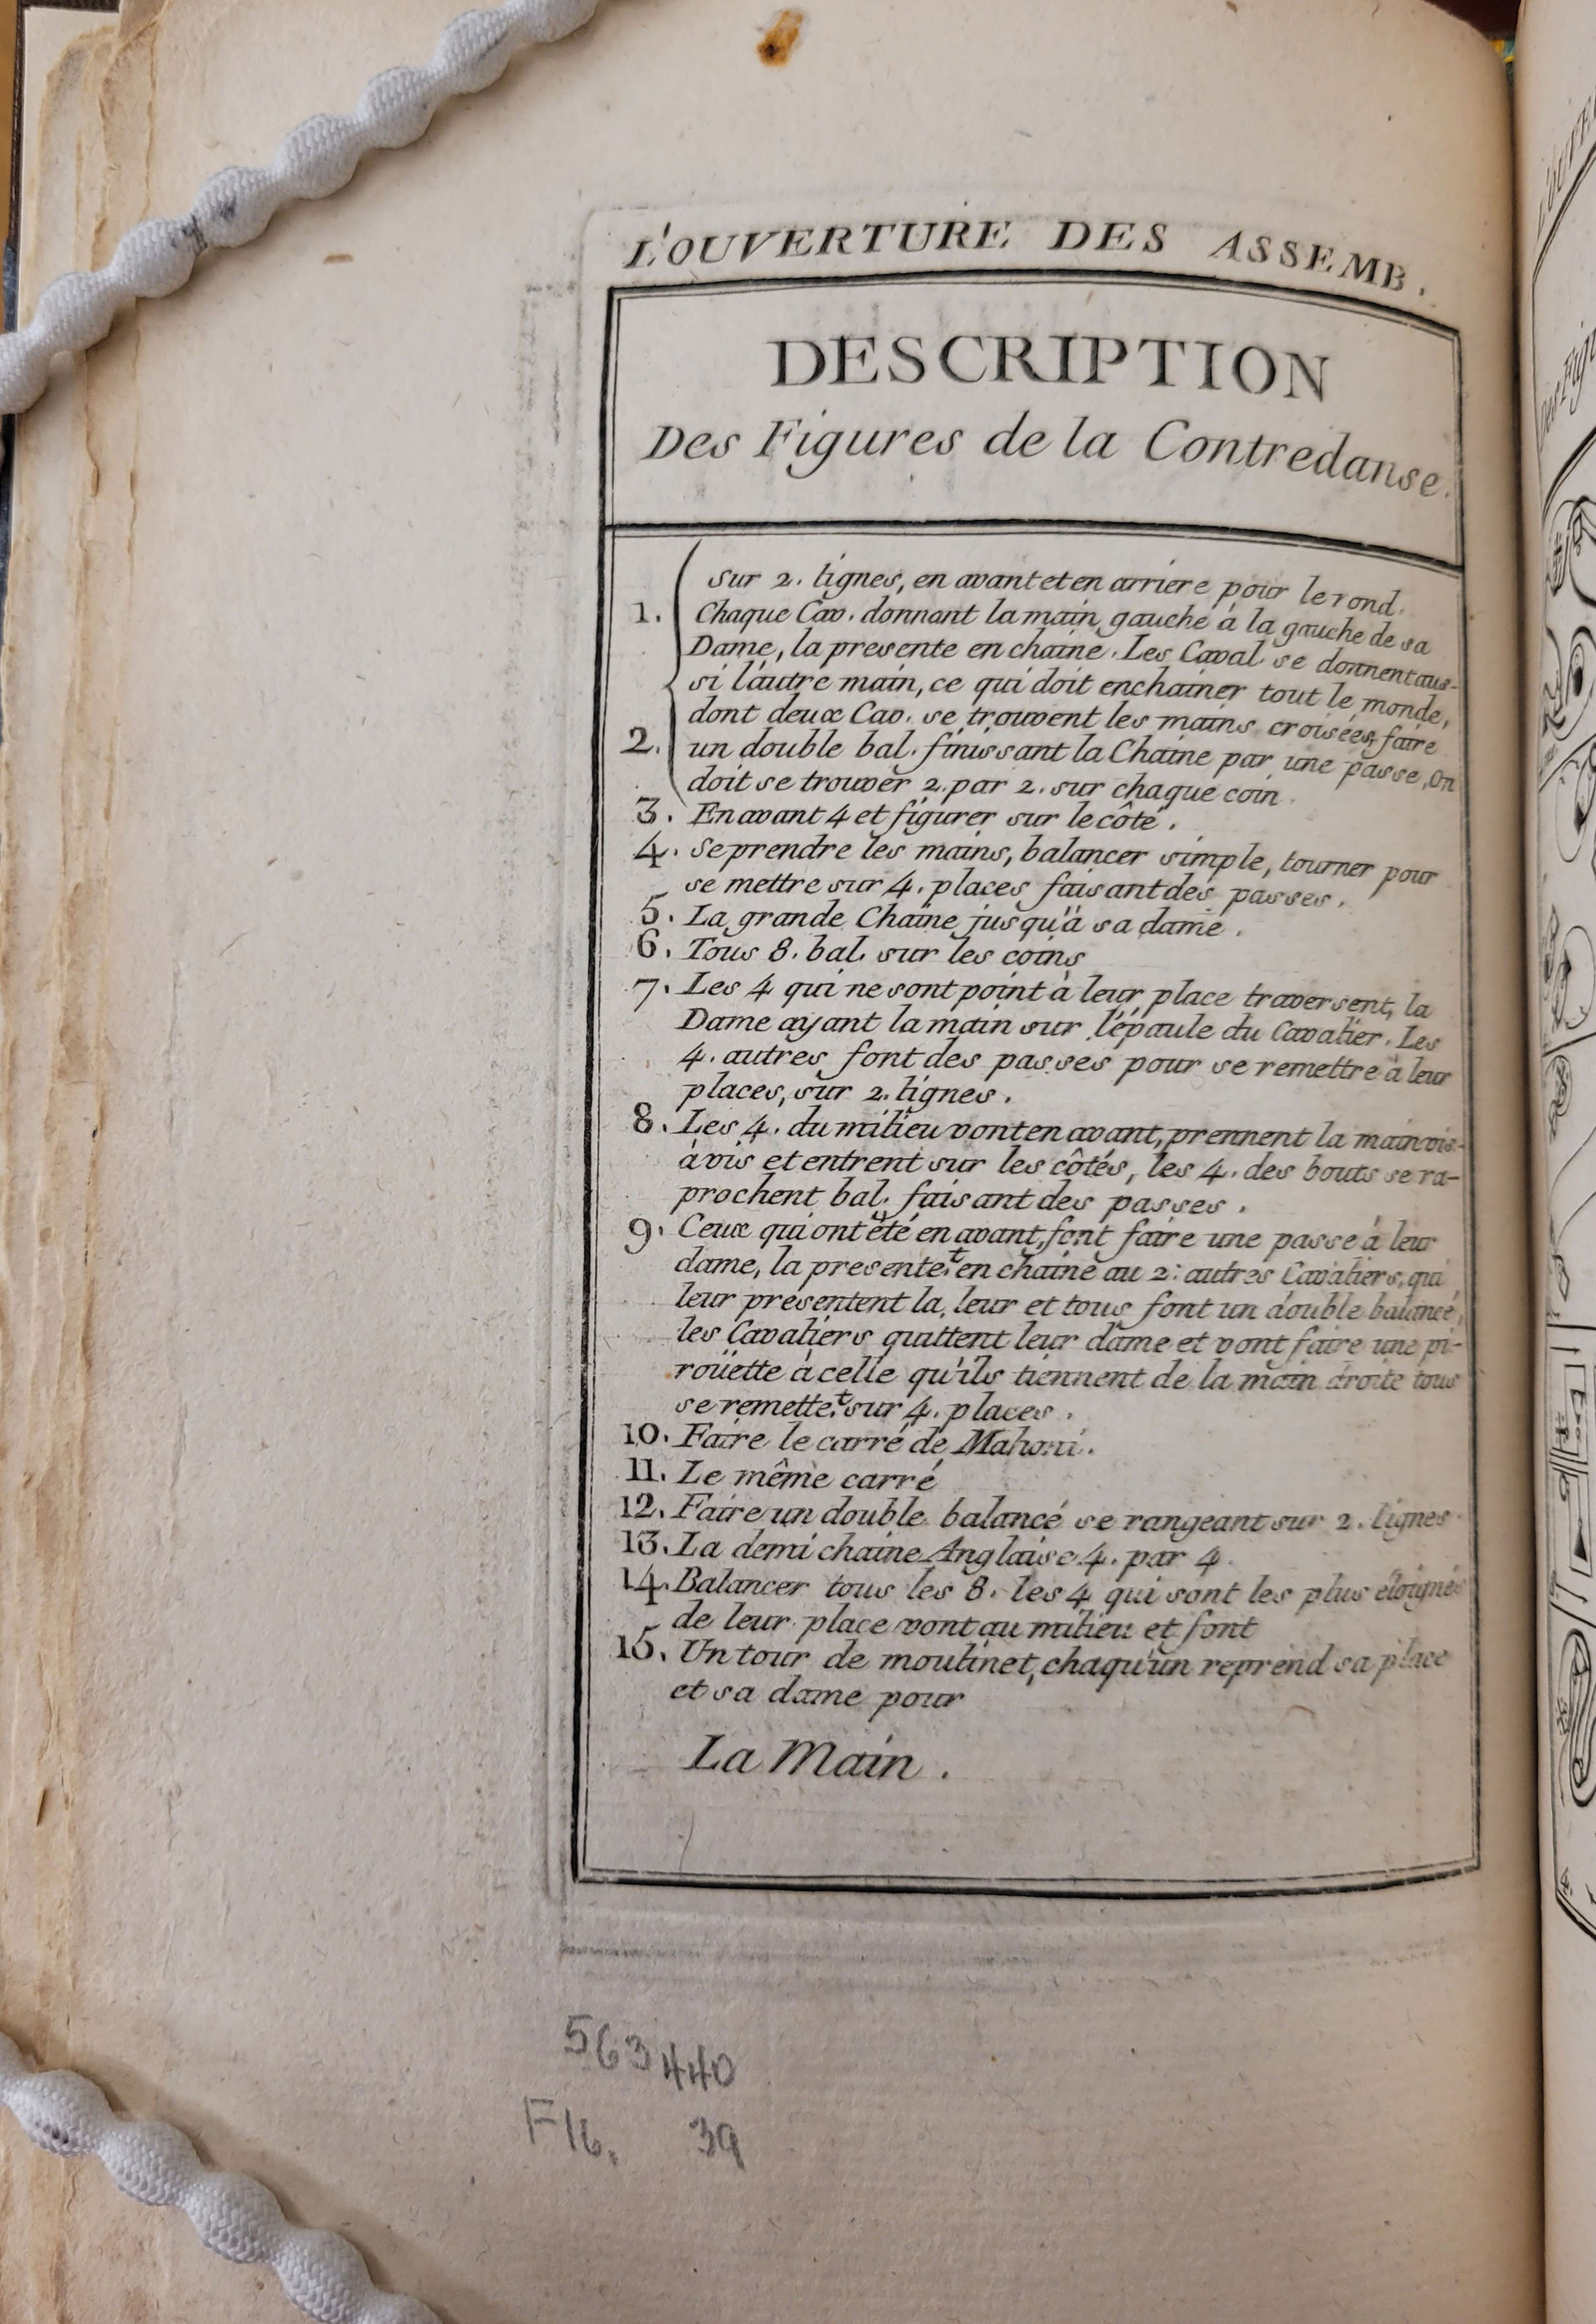 L'OUVERTURE DES ASSEMB.
DESCRIPTION
Des Figures de la Contredanse.
Sur 2. lignes, en avant et en arriere pour le rond.
1. Chaque Cav. donnant la main gauche à la gauche de sa
Dame, la presente en chaine. Les Caval. se donnent aus-
si l'autre main, ce qui doit enchainer tout le monde,
dont deux Cav. se trouvent les mains croisées, faire
2. un double bal. finissant la Chaine par une passe, On
doit se trouver 2. par 2. sur chaque coin.
3. En avant 4 et figurer sur le côté.
4. Se prendre les mains, balancer simple, tourner pour
se mettre sur 4. places faisant des passes.
5. La grande Chaine jusqu'à sa dame.
6. Tous 8. bal. sur les coins
7. Les 4 qui ne sont point à leur place traversent, la
Dame ayant la main sur l'épaule du Cavalier. Les
4. autres font des passes pour se remettre à leur
places, sur 2. lignes.
8. Les 4. du milieu vont en avant, prennent la main vis-
à vis et entrent sur les côtés, les 4. des bouts se ra-
prochent bal. faisant des passes.
9. Ceux qui ont été en avant, font faire une passe à leur
dame, la presente.t en chaine au 2: autres Cavaliers, qui
leur présentent la leur et tous font un double balancé,
les Cavaliers quittent leur dame et vont faire une pi-
roüette à celle qu'ils tiennent de la main droite tous
se remette.t sur 4. places.
10. Faire le carré de Mahoni.
11. Le même carré
12. Faire un double balancé se rangeant sur 2. lignes
13. La demi chaine Anglaise 4. par 4.
14. Balancer tous les 8. les 4 qui sont les plus éloignés
de leur place vont au milieu et font
15. Un tour de moulinet, chaqu'un reprend sa place
et sa dame pour
La Main.
563440
F16. 39